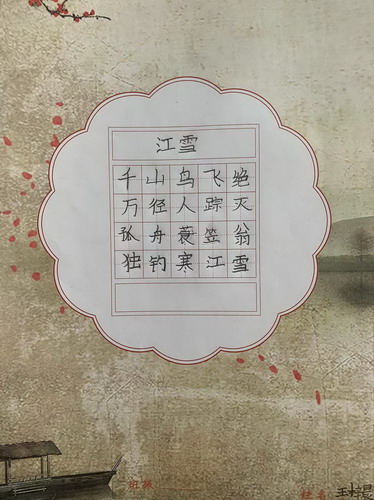 江雪
千山鸟飞绝
万径人踪灭
孤舟蓑笠翁
独钓寒江雪
班级
姓名